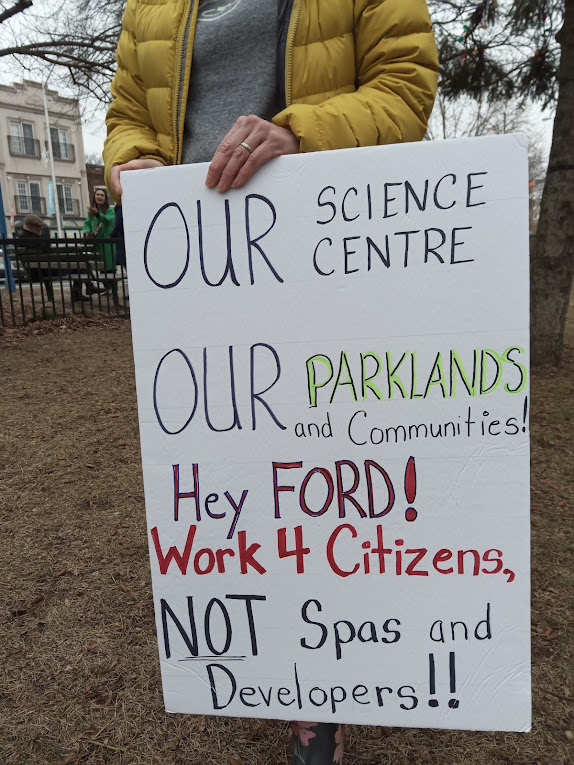 OUR SCIENCE
CENTRE
OUR PARKLANDS
and Communities!
Hey FORD!
Work 4 Citizens,
NOT Spas and
Developers!!